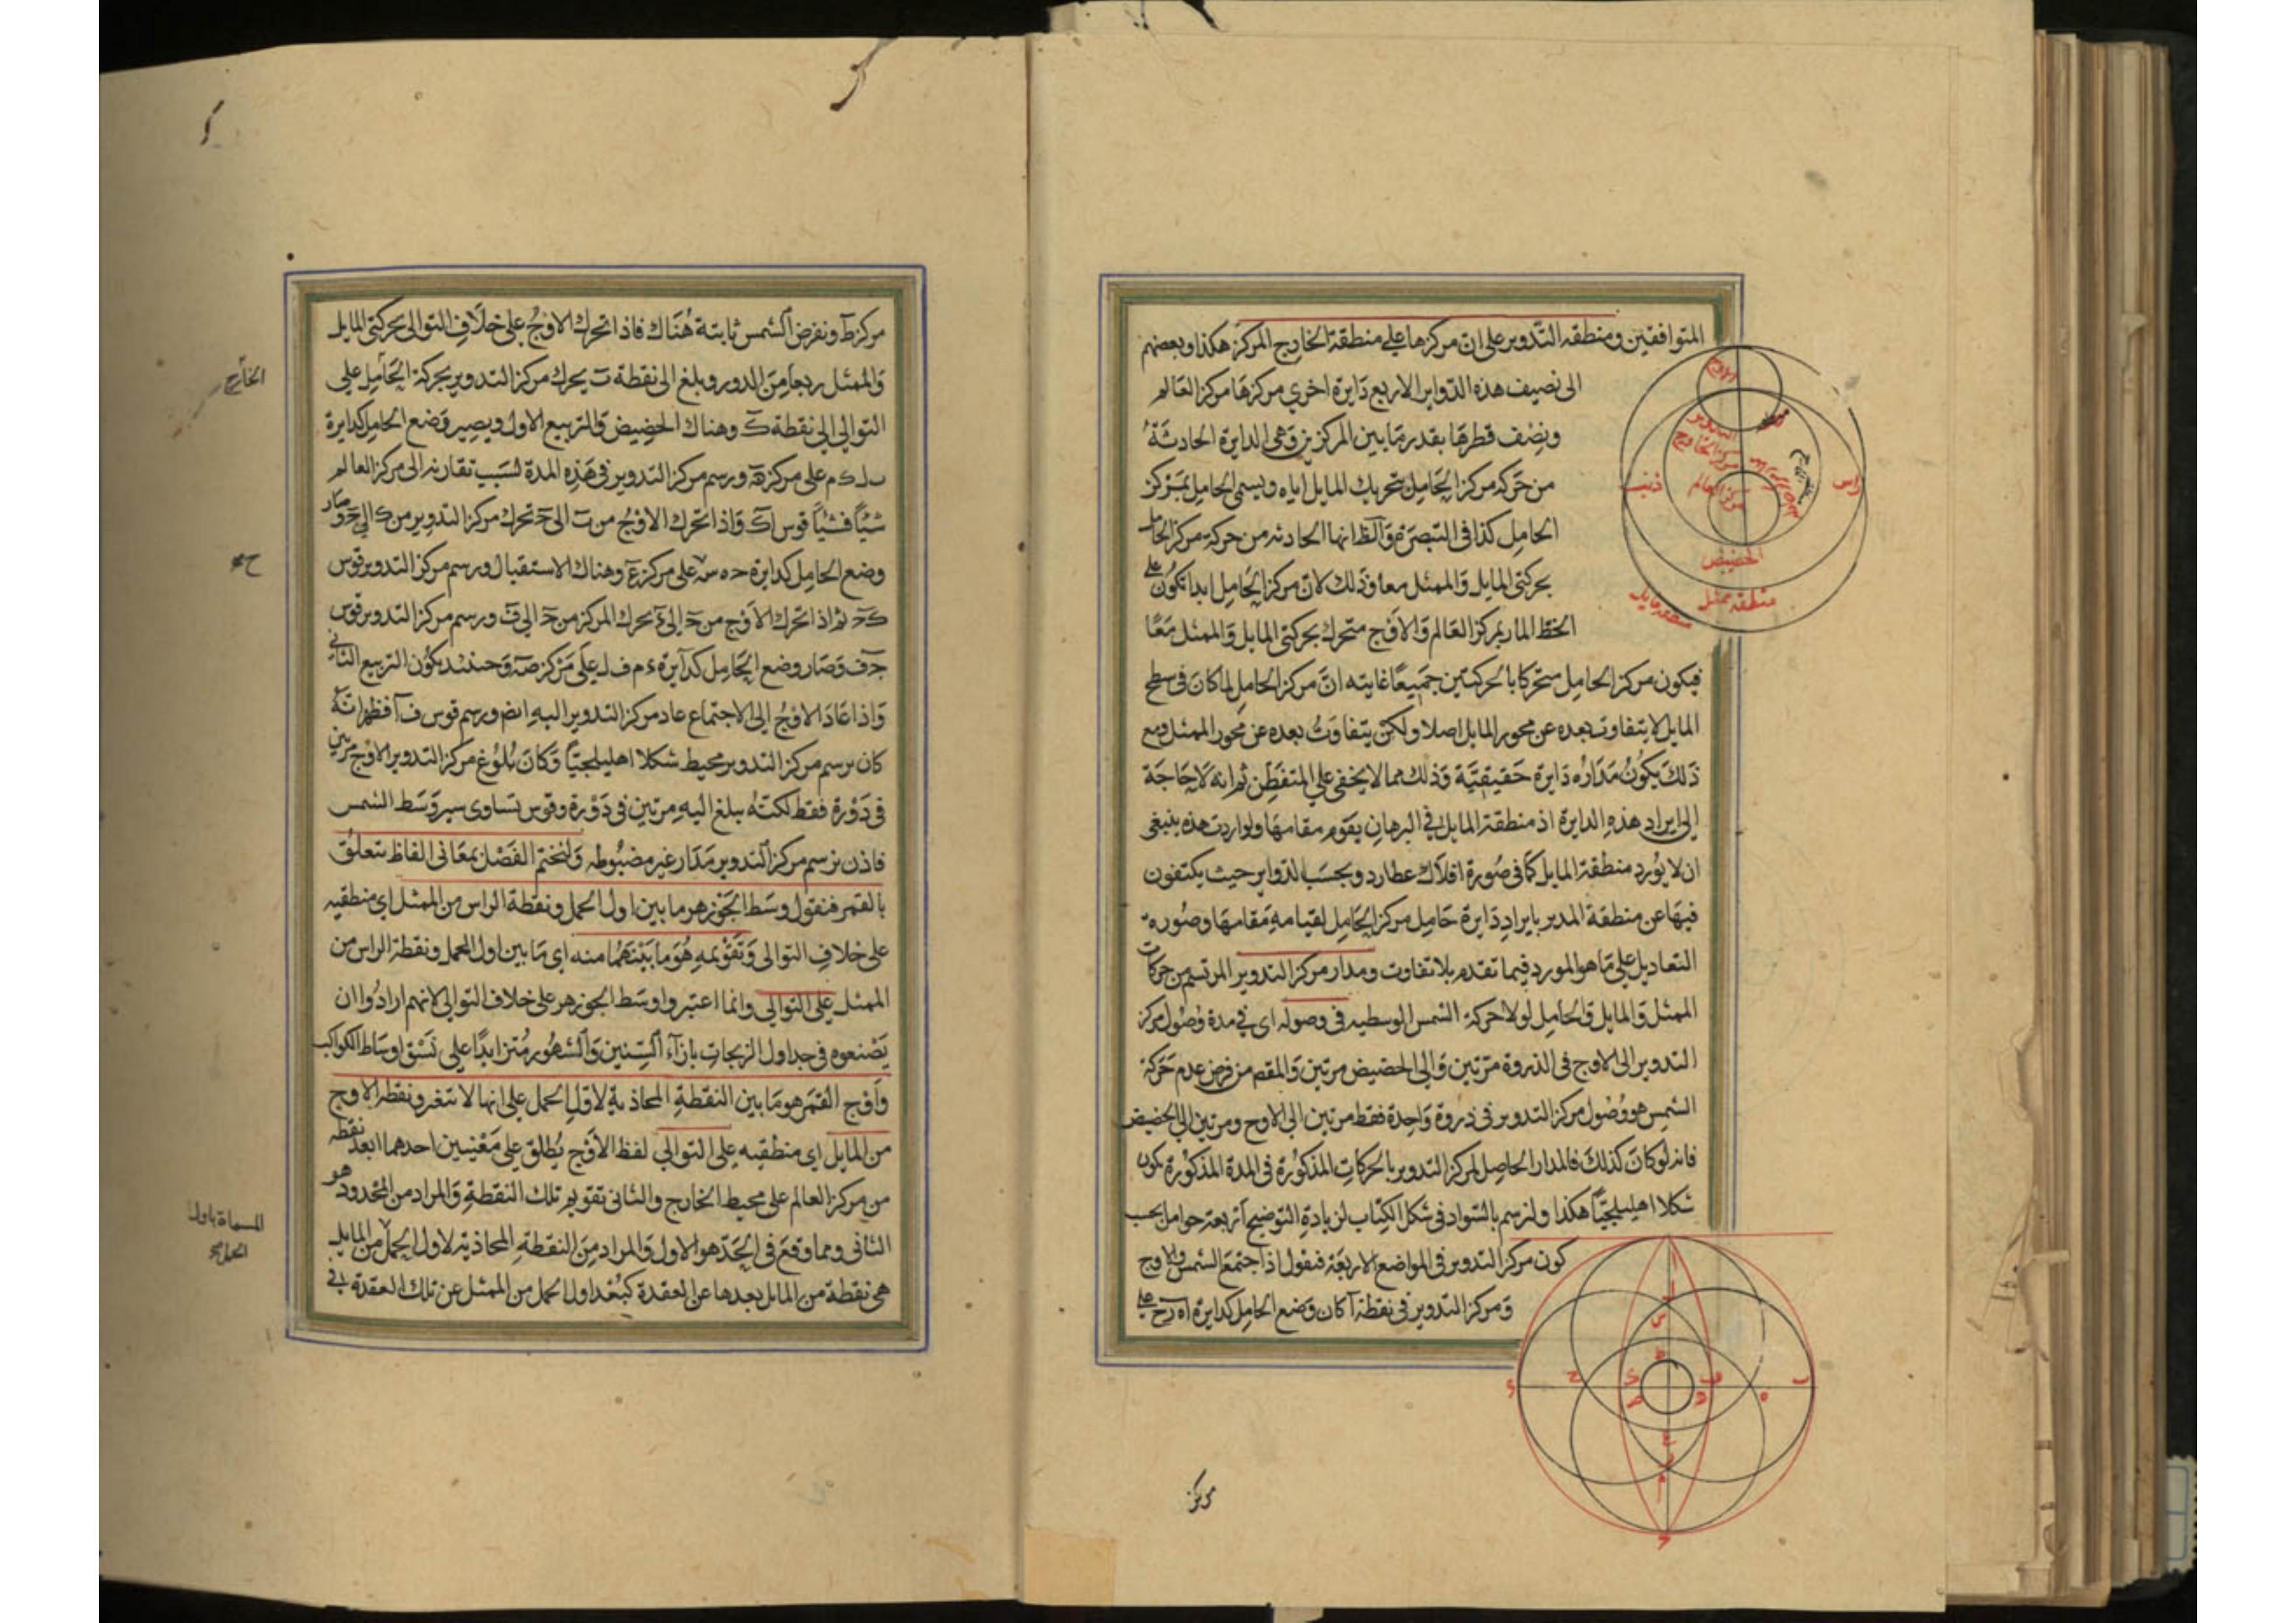 المتوافقين ومنطقه التدوير على ان مركزها على منطقة الخارج المركز هكذا وبعضهم
الى نصيف هذه الدواير الاربع دايرة اخرى مركزها مركز العالم
ونصف قطرها بقدر ما بين المركزين وهى الدايرة الحادثة
من حركه مركز الحامل بتحريك المايل اياه ويسمى الحامل لمركز
الحامل كذا فى التبصرة والظ انها الحادثه من حركه مركز الحامل
بحركتى المايل والممثل معا وذلك لان مركز الحامل ابدا يكون على
الخط المار بمركز العالم والاوج متحرك بحركتى المايل والممثل معًا
فيكون مركز الحامل متحركا بالحركتين جميعًا غايته ان مركز الحامل لما كان فى سطح
المايل لا يتفاوت بعده عن محور المايل اصلا ولكن يتفاوت بعده عن محور الممثل ومع
ذلك يكون مداره دايرة حقيقيّة وذلك مما لا يخفى على المتفطن ثم انه لا حاجة
الى ايراد هذه الدايرة اذ منطقة المايل فى البرهان يقوم مقامها ولو اردت هذه ينبغى
ان لا يورد منطقة المايل كما فى صورة افلاك عطارد وبحسب الدواير حيث يكتفون
فيها عن منطقة المدير بايراد دايرة حامل مركز الحامل لقيامه مقامها وصوره
التعاديل على ما هو المورد فيما تقدم بلا تفاوت ومدار مركز التدوير المرتسم من حركات
الممثل والمايل والحامل لولا حركة الشمس الوسطيه فى وصوله اى فى مدة وصول مركز
التدوير الى الاوج فى الذروة مرّتين والى الحضيض مرتين والمقصم من فرض عدم حركة
الشمس هو وصول مركز التدوير فى ذروة واحدة فقط مرتين الى الاوج ومرتين الى الحضيض
فانه لو كان كذلك فالمدار الحاصل لمركز التدوير بالحركات المذكورة فى المدة المذكورة يكون
شكلا اهليلجيًّا هكذا ولنرسم بالسواد فى شكل الكتاب لزيادة التوضيح اربعة حوامل بحسب
كون مركز التدوير فى المواضع الاربعة فنقول اذا اجتمع الشمس والاوج
ومركز التدوير فى نقطة آ كان وضع الحامل كدايرة اه رح على
الاوج
التدوير
مركز الخارج
مركز العالم
راس
ذنب
الحضيض
منطقه ممثل
منطقه مايل
مركز
مركز ط ونفرض الشمس ثابتة هناك فاذا تحرك الاوج على خلاف التوالى بحركتى المايل
والممثل ربعا من الدور وبلغ الى نقطة ب يحرك مركز التدوير بحركة الحامل على
التوالى الى نقطة ك وهناك الحضيض والتربيع الاول ويصير وضع الحامل كدايرة
ب ل ك م على مركز ه ورسم مركز التدوير فى هذه المدة لسبب تقاربه الى مركز العالم
شيًا فشيًا قوس اك واذا تحرك الاوج من ب الى ح تحرك مركز التدوير من ك الى ح وصار
وضع الحامل كدايرة ح ه س على مركز ع وهناك الاستقبال ورسم مركز التدوير قوس
ك ح ثم اذا تحرك الاوج من ح الى ء تحرك المركز من ح الى ف ورسم مركز التدوير قوس
ح ف وصار وضع الحامل كدايرة ء م ف ل على مركز ص وحينئذ يكون التربيع الثانى
واذا عاد الاوج الى الاجتماع عاد مركز التدوير اليه ايضم ورسم قوس ف آ فظهر انه
كان برسم مركز التدوير محيط شكلا اهليلجيًّا وكان بلوغ مركز التدوير الاوج مرتين
فى دورة فقط لكنه يبلغ اليه مرتين فى دورة وقوس تساوى سير وسط الشمس
فاذن يرسم مركز التدوير مدار غير مضبوطه ولنختم الفصل بمعانى الفاظ يتعلق
بالقمر فنقول وسط الجوزهر ما بين اول الحمل ونقطة الراس من الممثل اى منطقته
على خلاف التوالى وتقويمه هو ما بينهما منه اى ما بين اول الحمل ونقطة الراس من
الممثل على التوالى وانما اعتبروا وسط الجوزهر على خلاف التوالى لانهم ارادوا ان
يضعوه فى جداول الزيجات بازاء السنين والشهور متزايدًا على نسق اوساط الكواكب
واوج القمر هو ما بين النقطة المحاذية لاول الحمل على انها لا تتغير ونقطة الاوج
من المايل اى منطقيه على التوالى لفظ الاوج يطلق على معنيين احدهما ابعد نقطه
من مركز العالم على محيط الخارج والثانى تقويم تلك النقطة والمراد من المحدود هو
الثانى ومما وقع فى الحدّ هو الاول والمراد من النقطة المحاذية لاول الحمل من المايل
هى نقطة من المايل بعدها عن العقدة كبعد اول الحمل من الممثل عن تلك العقدة فى
الخارج
المسماة باول
الحمل صح